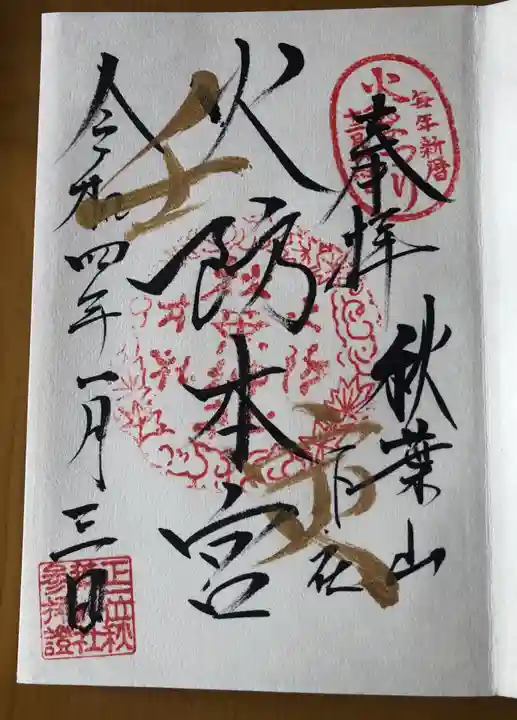 毎年新暦
火まつり
奉拝
秋葉山
下社
火防本宮
壬
寅
令和四年一月三日
正一位秋
葉神社
参拝證